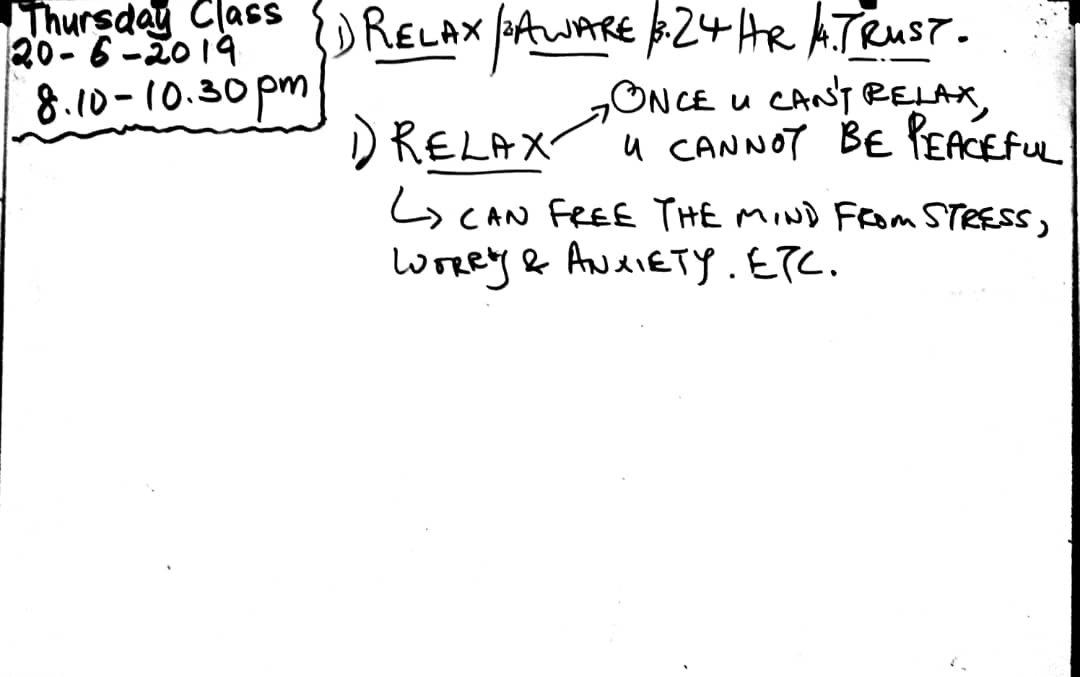 Thursday Class
20-6-2019
8.10-10.30pm
1) RELAX /2.AWARE /3.24 HR /4.TRUST.
1) RELAX → ONCE u CAN'T RELAX,
u CANNOT BE PEACEFUL
↳ CAN FREE THE MIND FROM STRESS,
WORRY & ANXIETY. ETC.